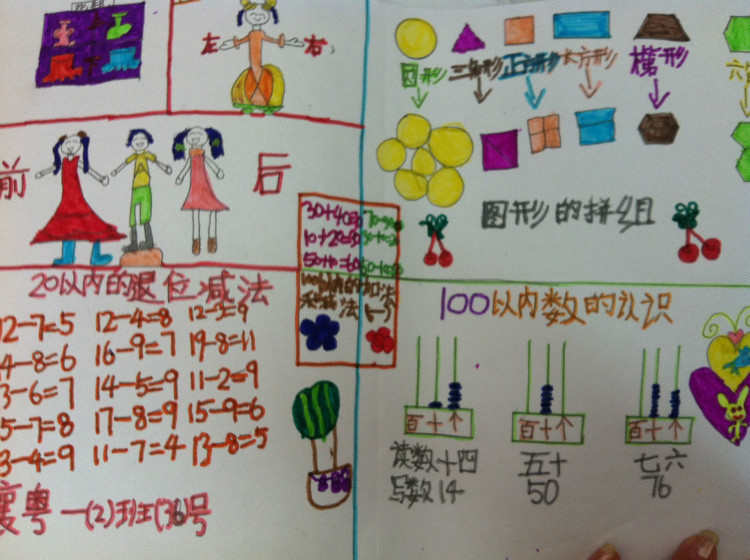 左 右
前 后
20以内的退位减法
12-7=5 12-4=8 12-3=9
4-8=6 16-9=7 19-8=11
3-6=7 14-5=9 11-2=9
5-7=8 17-8=9 15-9=6
3-4=9 11-7=4 13-8=5
粤 一(2)班(36)号
10+20=30
50+10=60
圆形 三角形 正方形 长方形
图形的拼组
100以内数的认识
百十个 百十个 百十个
读数十四 五十 七六
写数14 50 76